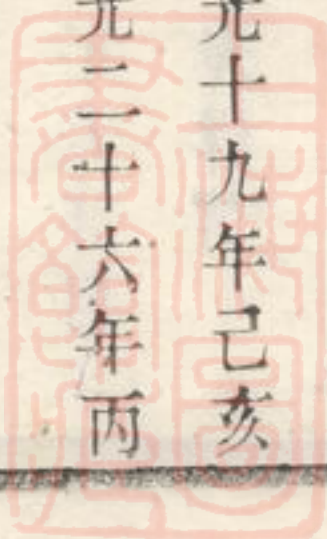 元十九年己亥
元二十六年丙